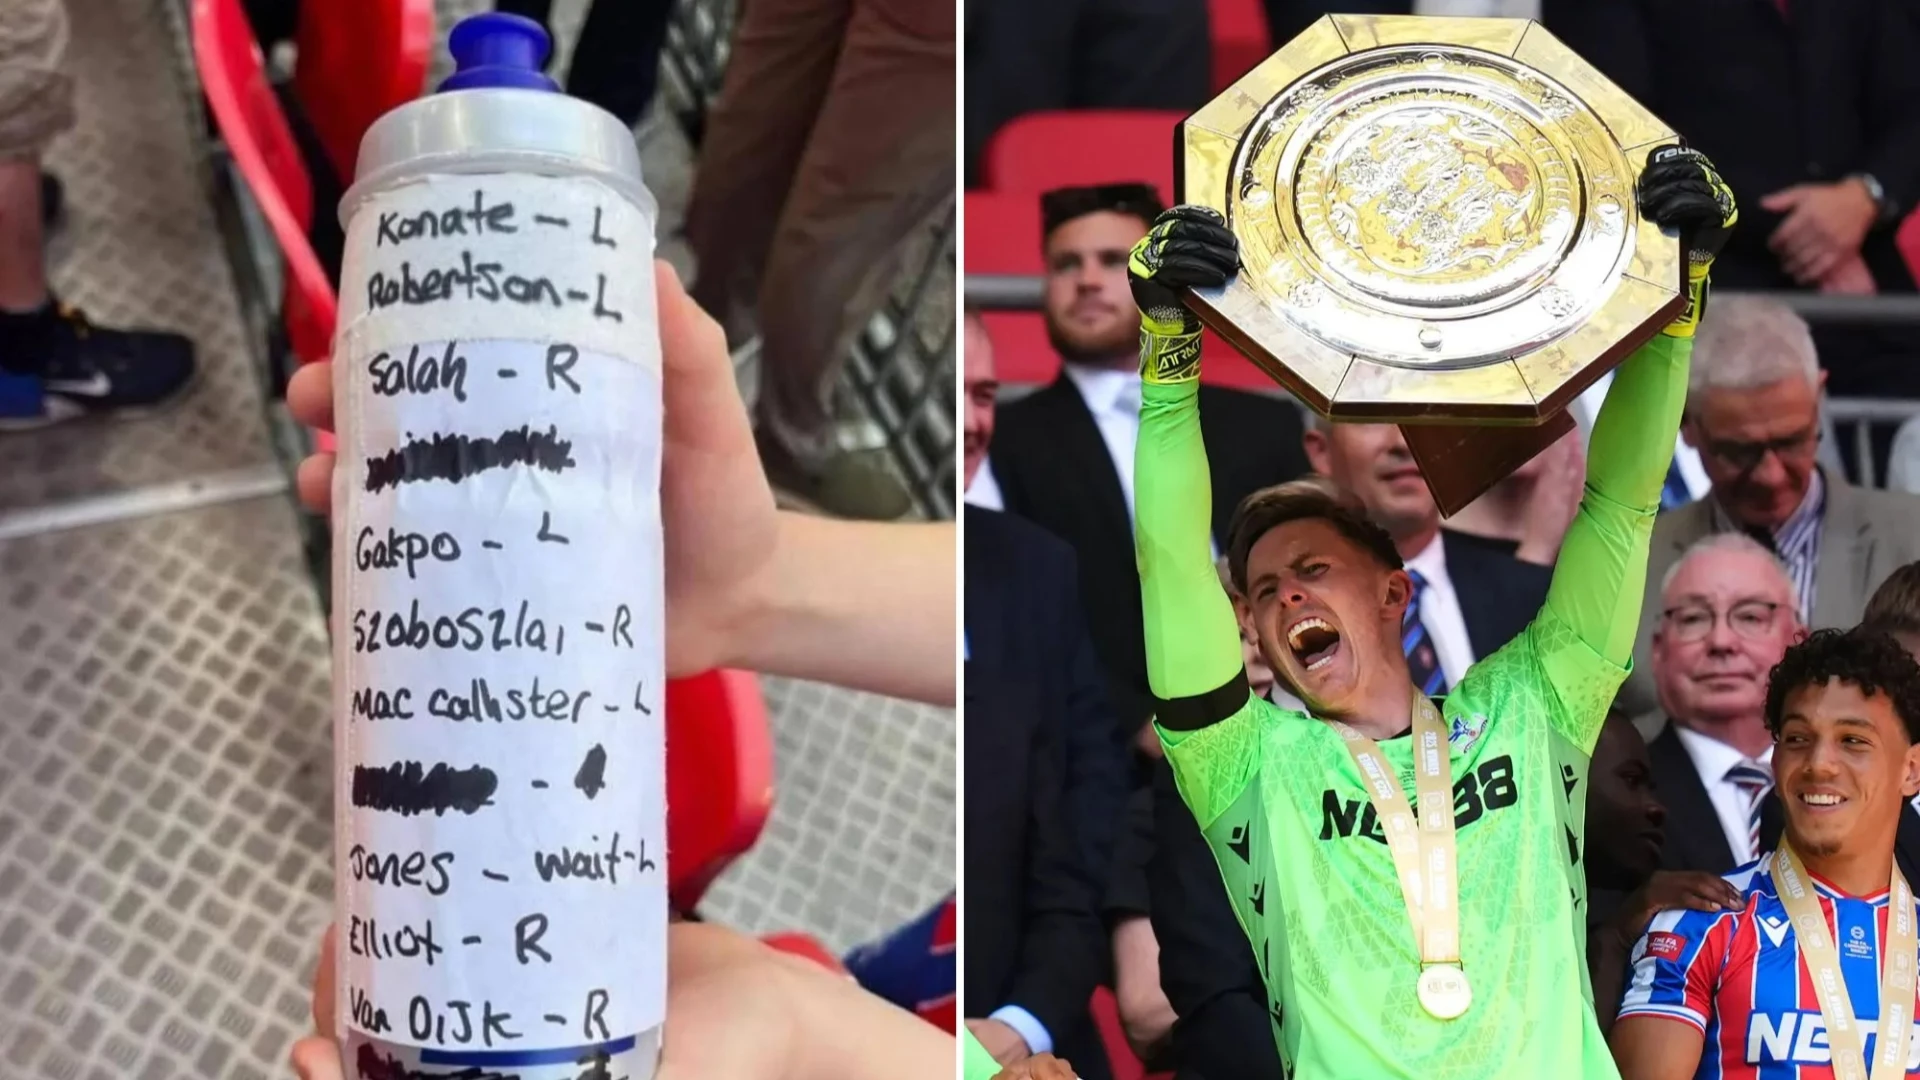 Konate - L
Robertson - L
Salah - R
Gakpo - L
Szoboszlai - R
Mac callister - L
-
Jones - wait - L
Elliot - R
Van Dijk - R
reusch
ATTRAKT
2025 WINNER
NET88
THE FA
COMMUNITY
SHIELD
2025 WINNER
NET88